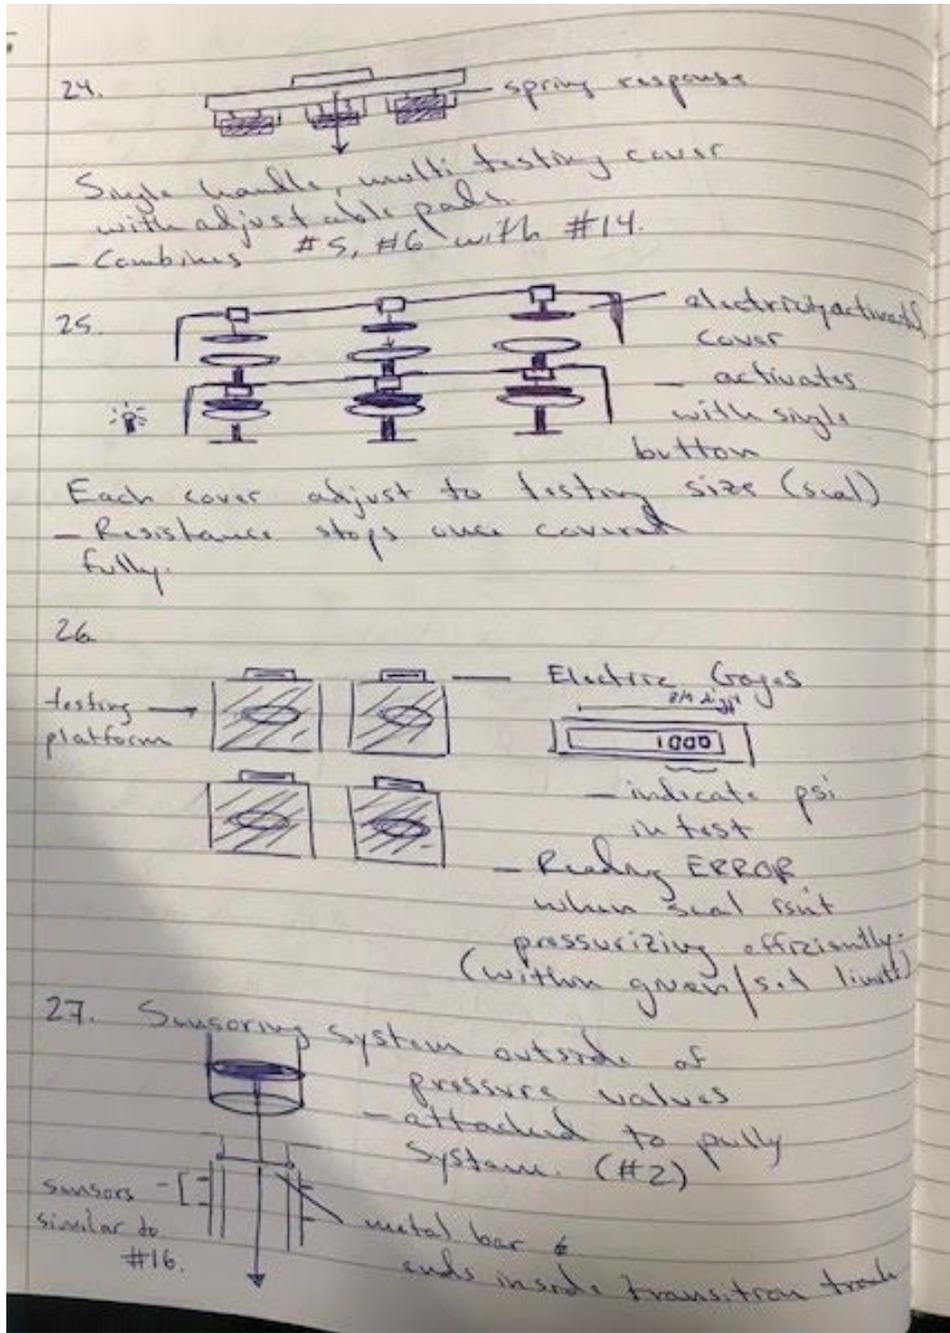 24.
spring response
Single handle, multi testing cover
with adjustable pads.
- Combines #5, #6 with #14.
25.
electricly activated
cover
- activates
with single
button
Each cover adjust to testing size (seal)
- Resistance stops once covered
fully.
26.
testing
platform
Electric Gages
digit
1000
- indicate psi
in test
- Reading ERROR
when seal isn't
pressurizing efficiently.
(within given/set limits)
27. Sensoring system outside of
pressure valves
- attached to pully
system. (#2)
sensors
similar to
#16.
metal bar &
ends inside transition track